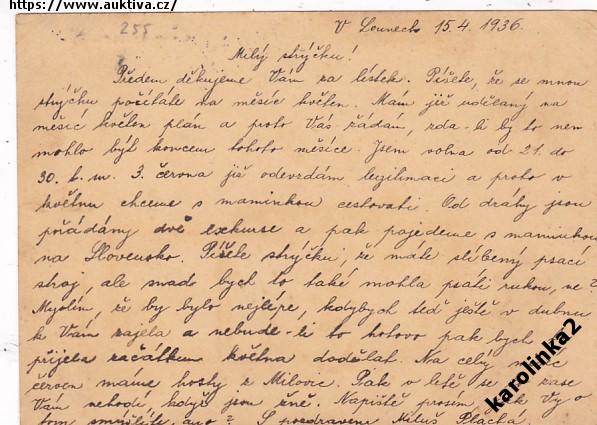 https://www.auktiva.cz/
255
V Lounech 15.4.1936.
Milý strýčku!
Předem děkujeme Vám za lístek. Píšete, že se mnou
strýčku počítáte na měsíc květen. Mám již udělaný na
měsíc květen plán a proto Vás žádám, zda-li by to nem
mohlo být koncem tohoto měsíce. Jsem volna od 21. do
30. t. m. 3. června již odevzdám legitimaci a proto v
květnu chceme s maminkou cestovati. Od dráhy jsou
pořádány dvě exkurse a pak pojedeme s maminkou
na Slovensko. Píšete strýčku, že máte slíbený psací
stroj, ale snad bych to také mohla psáti rukou, ne?
Myslím, že by bylo nejlépe, kdybych teď ještě v dubnu
k Vám zajela a nebude-li to hotovo pak bych
přijela začátkem května dodělat. Na celý měsíc
červen máme hosty z Milovic. Pak v létě se to zase
Vám nehodí, když jsou žně. Napište prosím, jak Vy o
tom smýšlíte, ano? S pozdravem Miluš Plachá
karolinka2